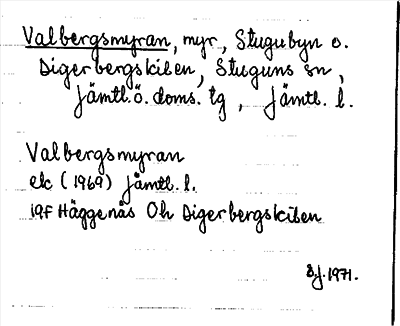 Valbergsmyran, myr, Stugubyn o.
Digerbergskilen, Stuguns sn,
Jämtl.ö. doms. tg, Jämtl. l.
Valbergsmyran
ek (1969) Jämtl. l.
19F Häggenås Oh Digerbergskilen
1971.